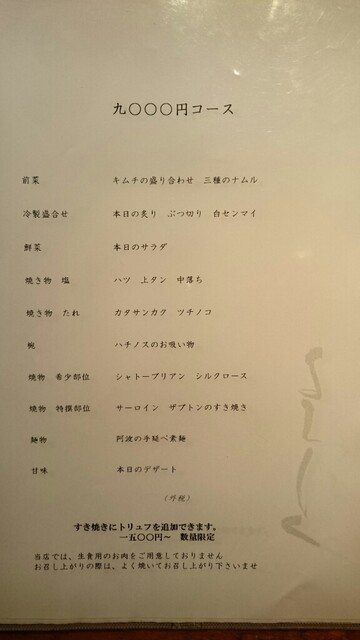 九〇〇〇円コース
前菜 キムチの盛り合わせ 三種のナムル
冷製盛合せ 本日の炙り ぶつ切り 白センマイ
鮮菜 本日のサラダ
焼き物 塩 ハツ 上タン 中落ち
焼き物 たれ カタサンカク ツチノコ
椀 ハチノスのお吸い物
焼物 希少部位 シャトーブリアン シルクロース
焼物 特撰部位 サーロイン ザブトンのすき焼き
麺物 阿波の手延べ素麺
甘味 本日のデザート
(外税)
すき焼きにトリュフを追加できます。
一五〇〇円〜 数量限定
当店では、生食用のお肉をご用意しておりません
お召し上がりの際は、よく焼いてお召し上がり下さいませ